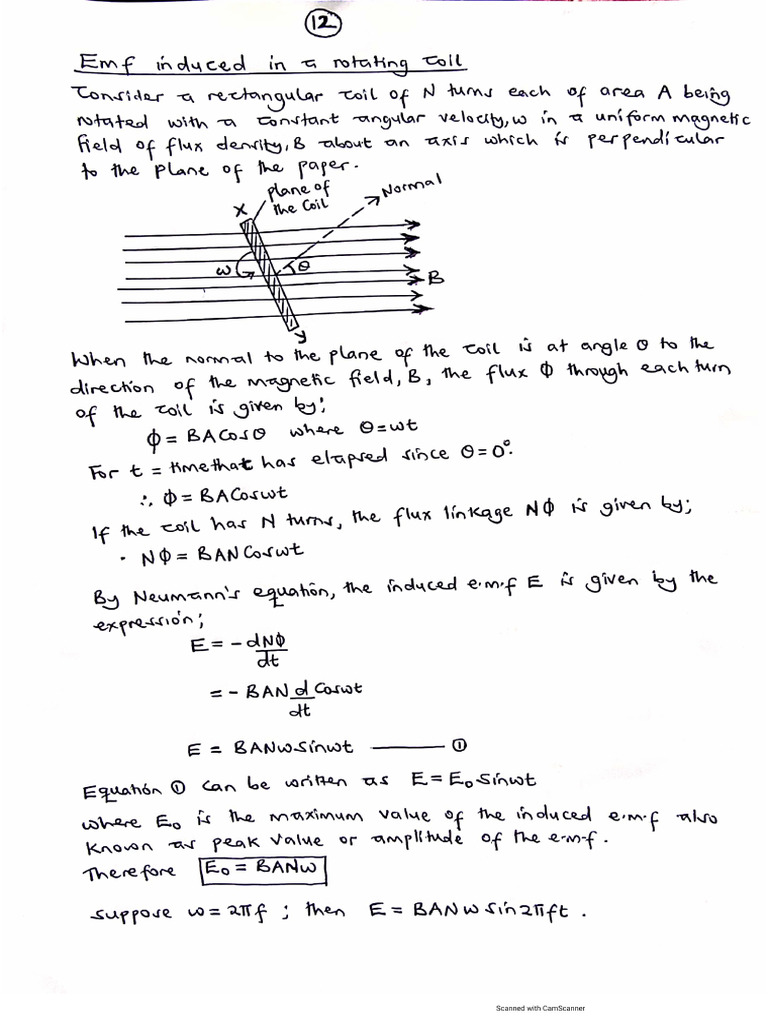 12
Emf induced in a rotating coil
Consider a rectangular coil of N turns each of area A being
rotated with a constant angular velocity, ω in a uniform magnetic
field of flux density, B about an axis which is perpendicular
to the plane of the paper.
plane of
the coil
Normal
X
ω
θ
B
y
When the normal to the plane of the coil is at angle θ to the
direction of the magnetic field, B, the flux ϕ through each turn
of the coil is given by;
ϕ = BACosθ where θ=ωt
For t = time that has elapsed since θ=0°.
∴ ϕ = BACosωt
If the coil has N turns, the flux linkage Nϕ is given by;
. Nϕ = BANCosωt
By Neumann's equation, the induced e.m.f E is given by the
expression;
E = - dNϕ/dt
= - BAN d/dt Cosωt
E = BANωSinωt ——— ①
Equation ① can be written as E = E₀Sinωt
where E₀ is the maximum value of the induced e.m.f also
known as peak value or amplitude of the e.m.f.
Therefore E₀ = BANω
Suppose ω = 2πf ; then E = BANωSin2πft .
Scanned with CamScanner